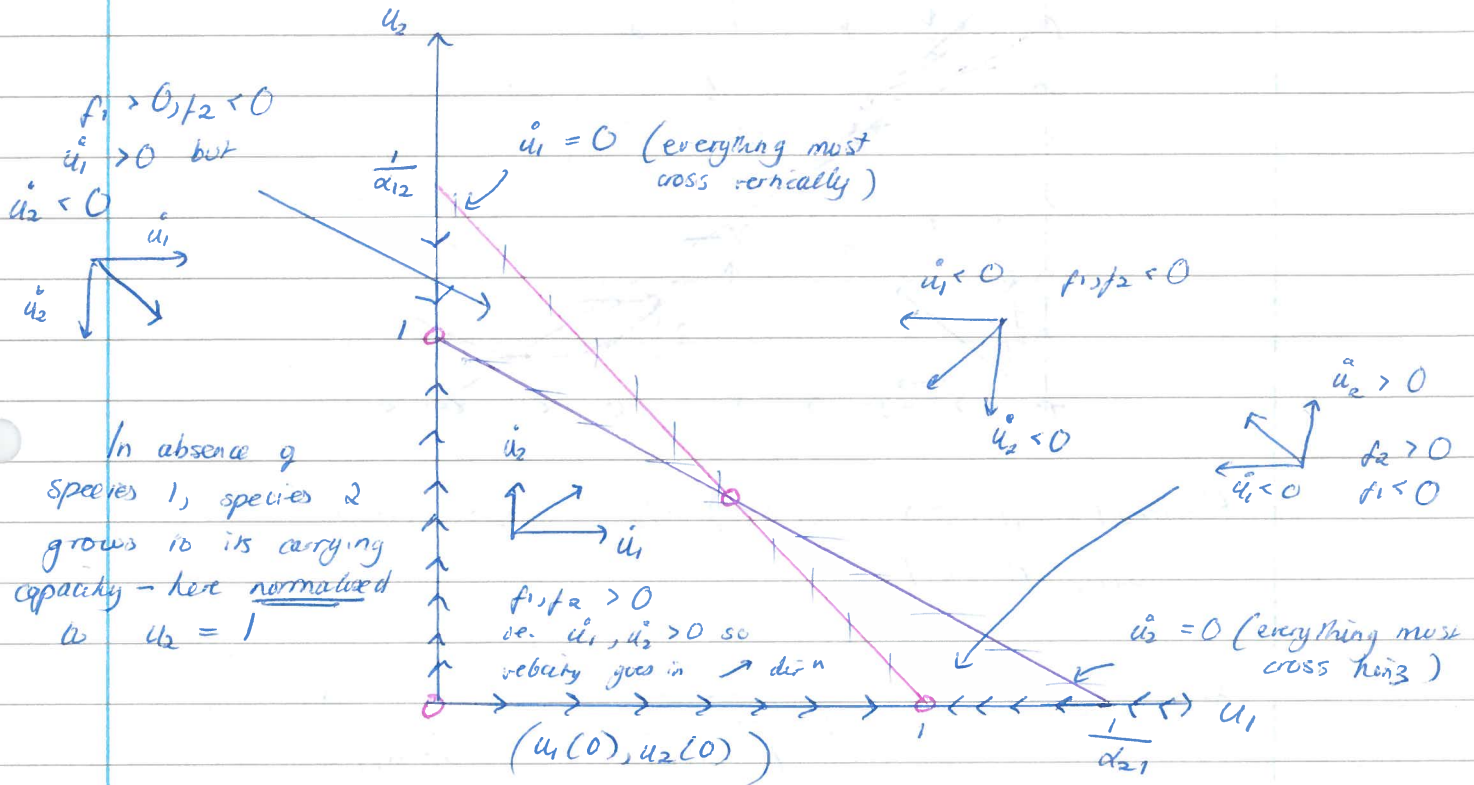 u₂
f₁ > 0, f₂ < 0
u̇₁ > 0 but
u̇₂ < 0
u̇₁
u̇₂
1/α₁₂
u̇₁ = 0 (everything must
cross vertically)
1
u̇₁ < 0 f₁, f₂ < 0
u̇₂ < 0
u̇₂ > 0
u̇₁ < 0
f₂ > 0
f₁ < 0
In absence of
species 1, species 2
grows to its carrying
capacity – here normalized
to u₂ = 1
u̇₂
u̇₁
f₁, f₂ > 0
ie. u̇₁, u̇₂ > 0 so
velocity goes in ↗ dirⁿ
u̇₂ = 0 (everything must
cross horiz)
(u₁(0), u₂(0))
1
1/α₂₁
u₁